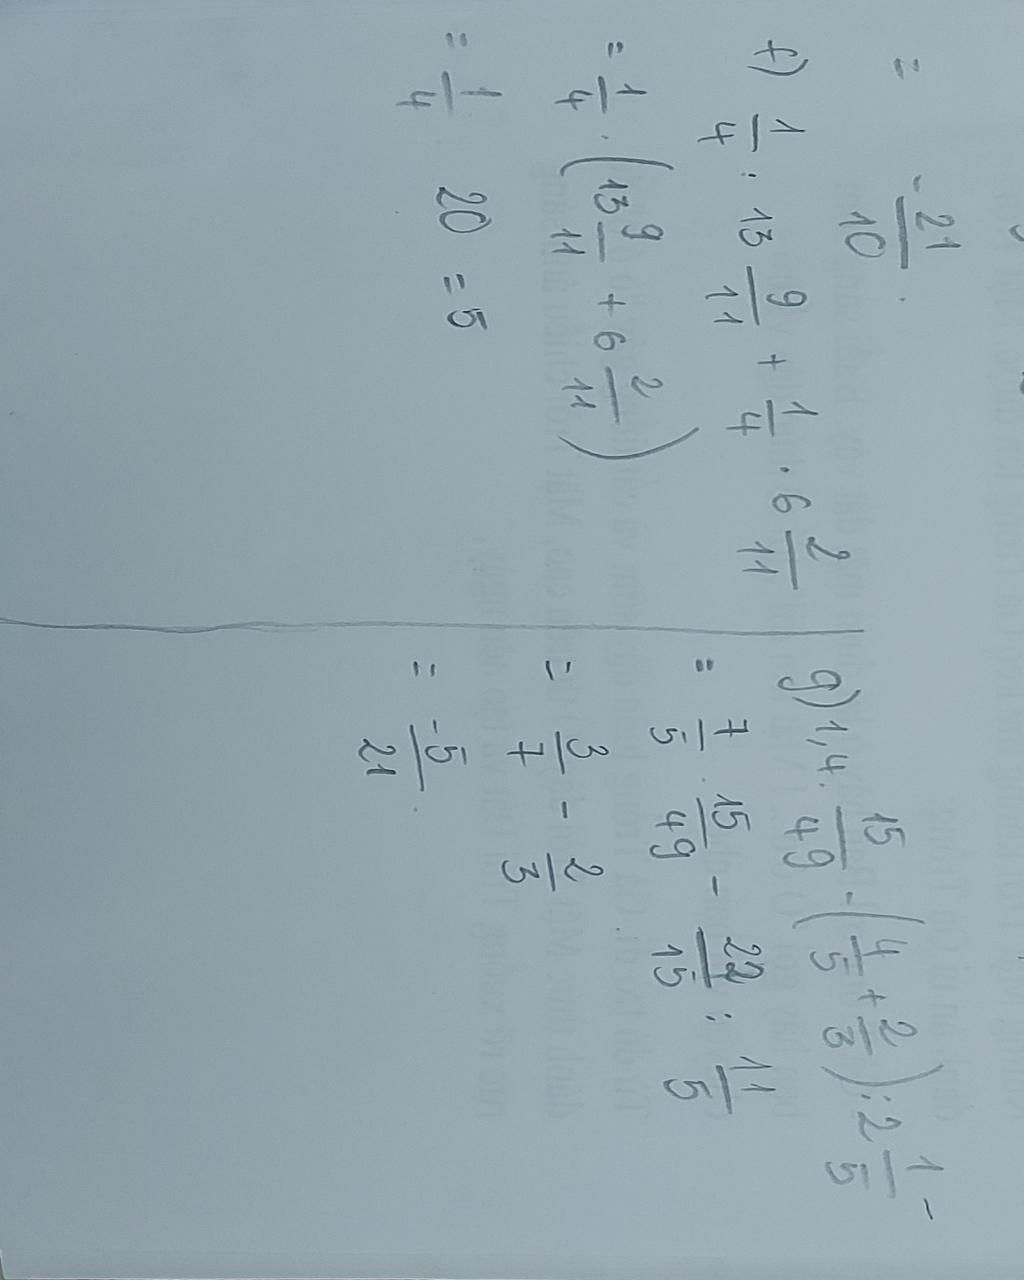 = -21/10 .
f) 1/4 : 13 9/11 + 1/4 . 6 2/11
= 1/4 . (13 9/11 + 6 2/11)
= 1/4 . 20 = 5
g) 1,4 . 15/49 - (4/5 + 2/3) : 2 1/5 -
= 7/5 . 15/49 - 22/15 : 11/5
= 3/7 - 2/3
= -5/21 .